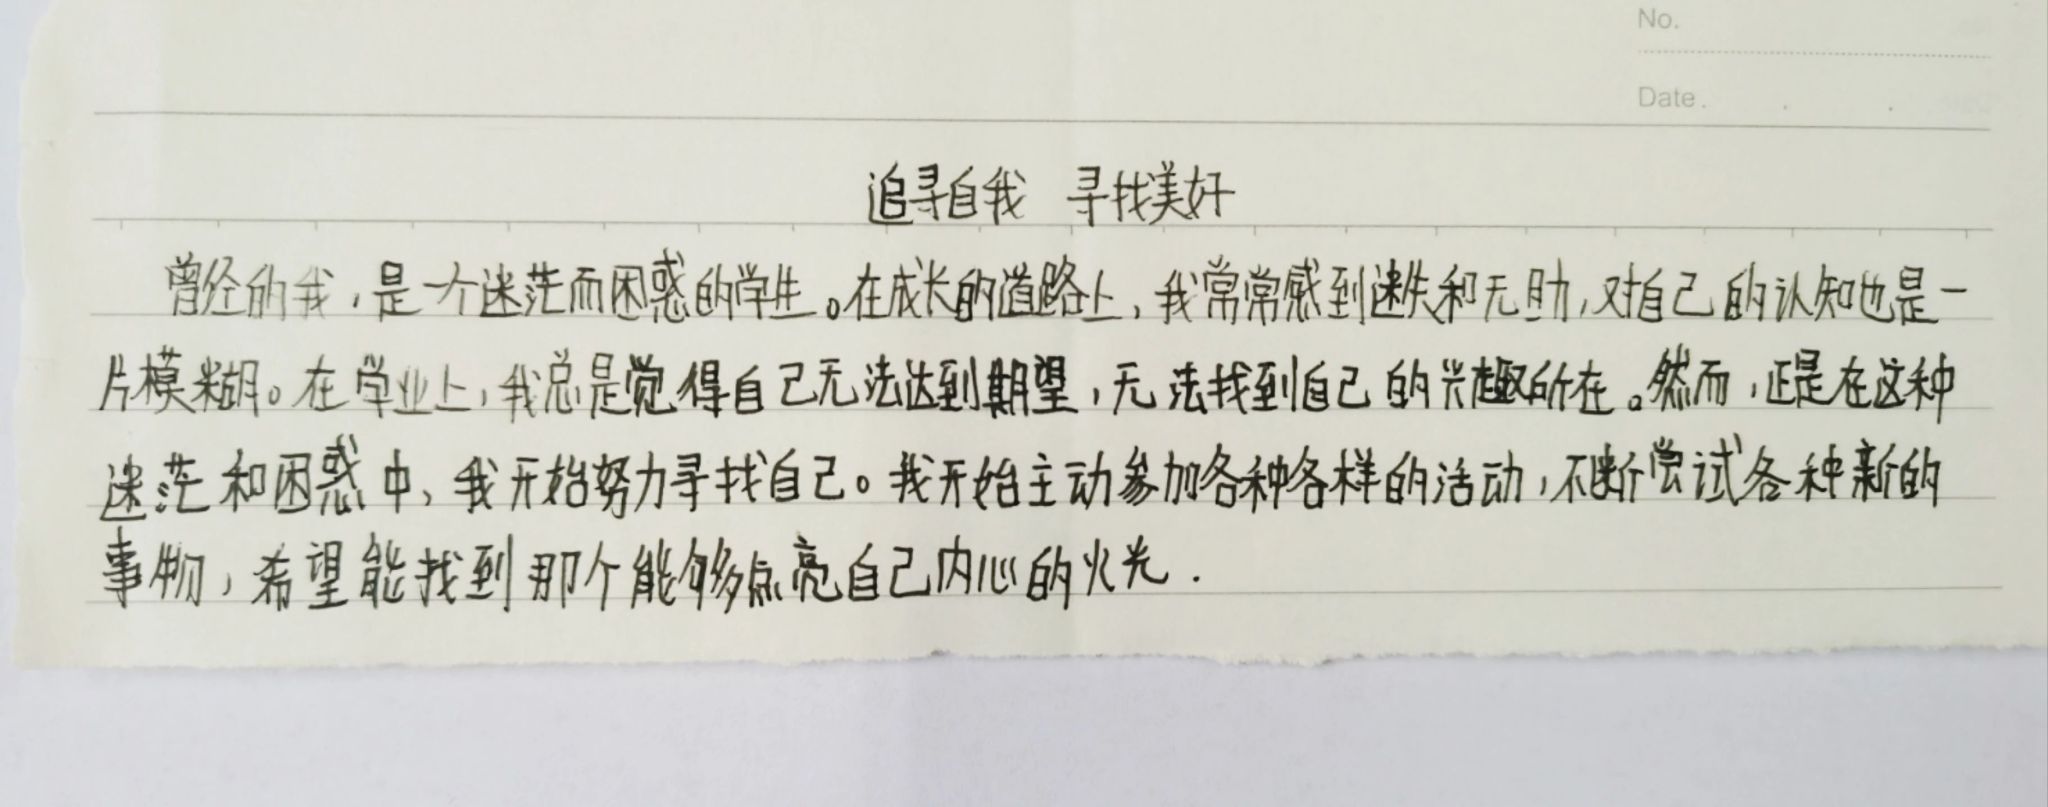 No.
Date.
追寻自我 寻找美好
曾经的我，是一个迷茫而困惑的学生。在成长的道路上，我常常感到迷失和无助，对自己的认知也是一
片模糊。在学业上，我总是觉得自己无法达到期望，无法找到自己的兴趣所在。然而，正是在这种
迷茫和困惑中，我开始努力寻找自己。我开始主动参加各种各样的活动，不断尝试各种新的
事物，希望能找到那个能够点亮自己内心的火光.